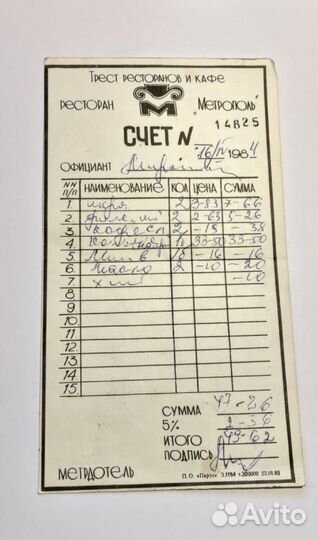 Трест ресторанов и кафе
Ресторан М "Метрополь"
14825
СЧЕТ N
16/IV 1984
Официант
NN п/п Наименование Кол Цена Сумма
1. икра 2 3-83 7-66
2. 2 2-63 5-26
3. кофе 2 -19 -38
4. 33-50 33-50
5. -16 -16
6. Масло 2 -10 -20
7. -10
8.
9.
10.
11.
12.
13.
14.
15.
Сумма 47-26
5% 2-36
Итого 49-62
Подпись
Метрдотель
П. О. «Парус» З.1164 т.300000 23.08.83
Avito